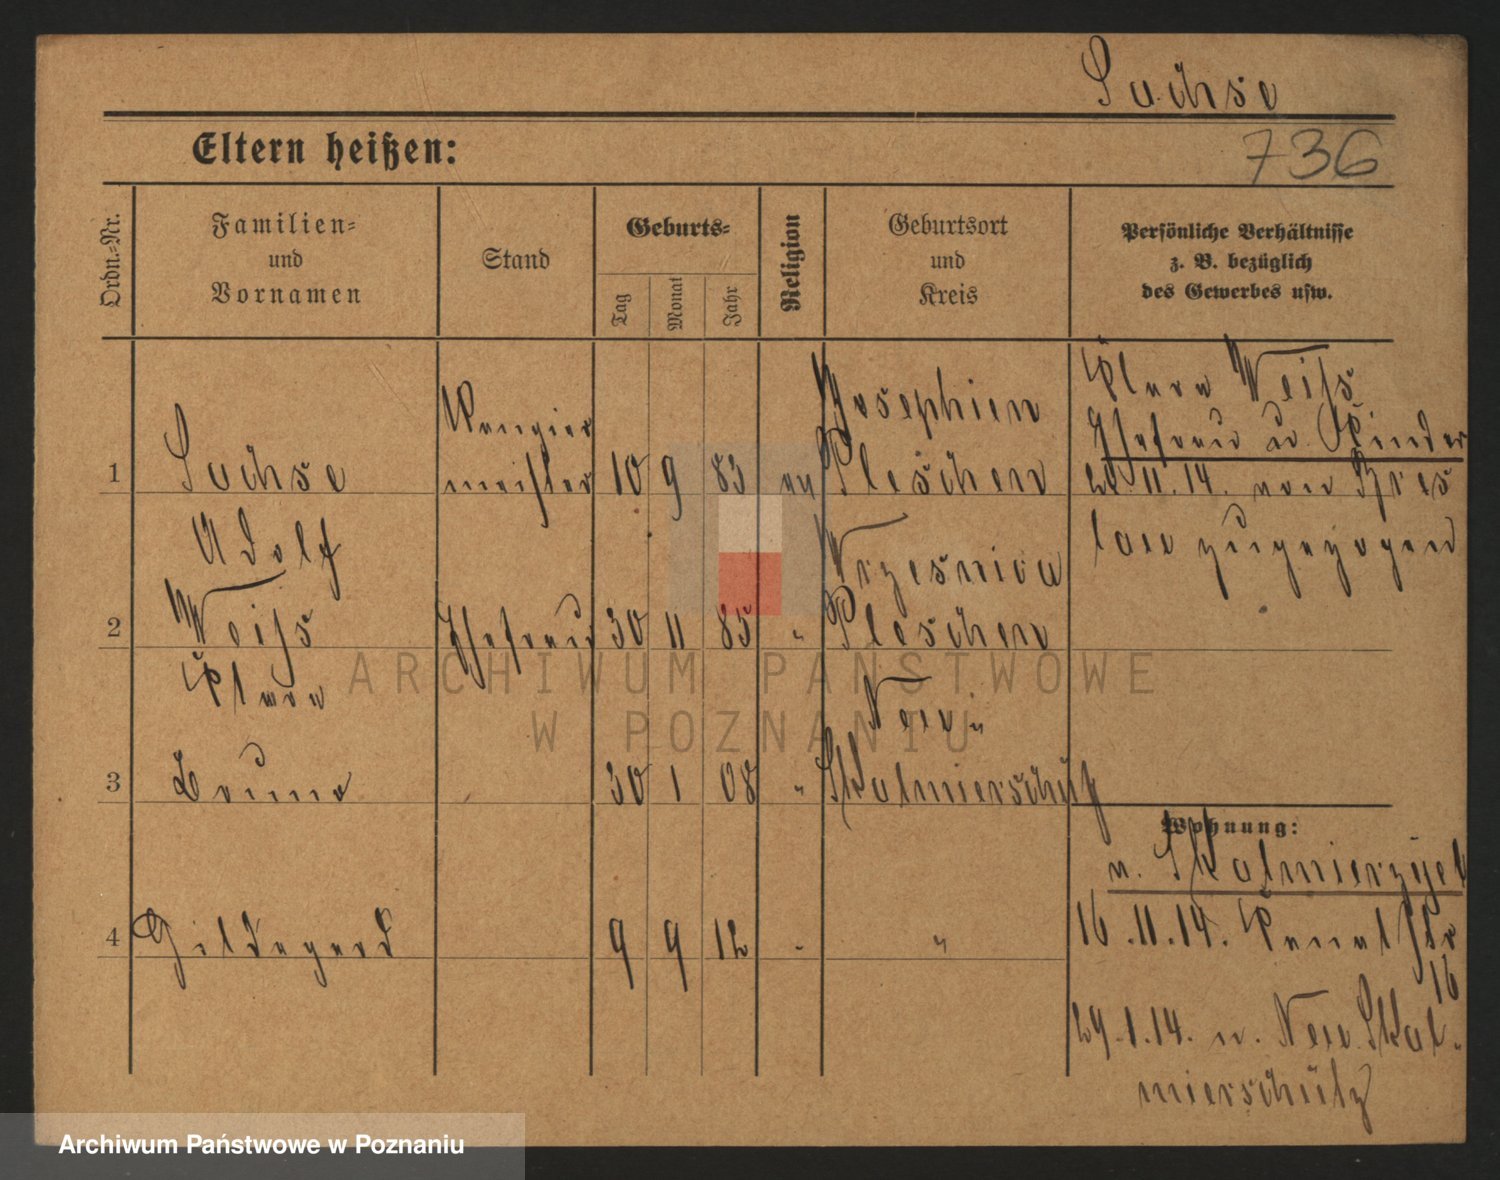 Sachse
Eltern heißen:
736
Ordn.-Nr.
Familien-
und
Vornamen
Stand
Geburts-
Tag
Monat
Jahr
Religion
Geburtsort
und
Kreis
Persönliche Verhältnisse
z. B. bezüglich
des Gewerbes usw.
1
Sachse
Adolf
Rangier
meister
10 9 83
ev
Josephien
Pleschen
Klara Weiß
Ehefrau u. Kinder
24.11.14. von Bres
lau zugezogen
2
Weiß
Klara
Ehefrau
30 11 85
"
Wrzesnica
Pleschen
3
Bruno
30 1 08
"
Neu-
Skalmierschütz
4
Hildegard
9 9 12
"
"
Wohnung:
n. Skalmierzyce
16.11.14.
16
29.1.14. n. Neu Skal-
mierschütz
ARCHIWUM PAŃSTWOWE
W POZNANIU
Archiwum Państwowe w Poznaniu